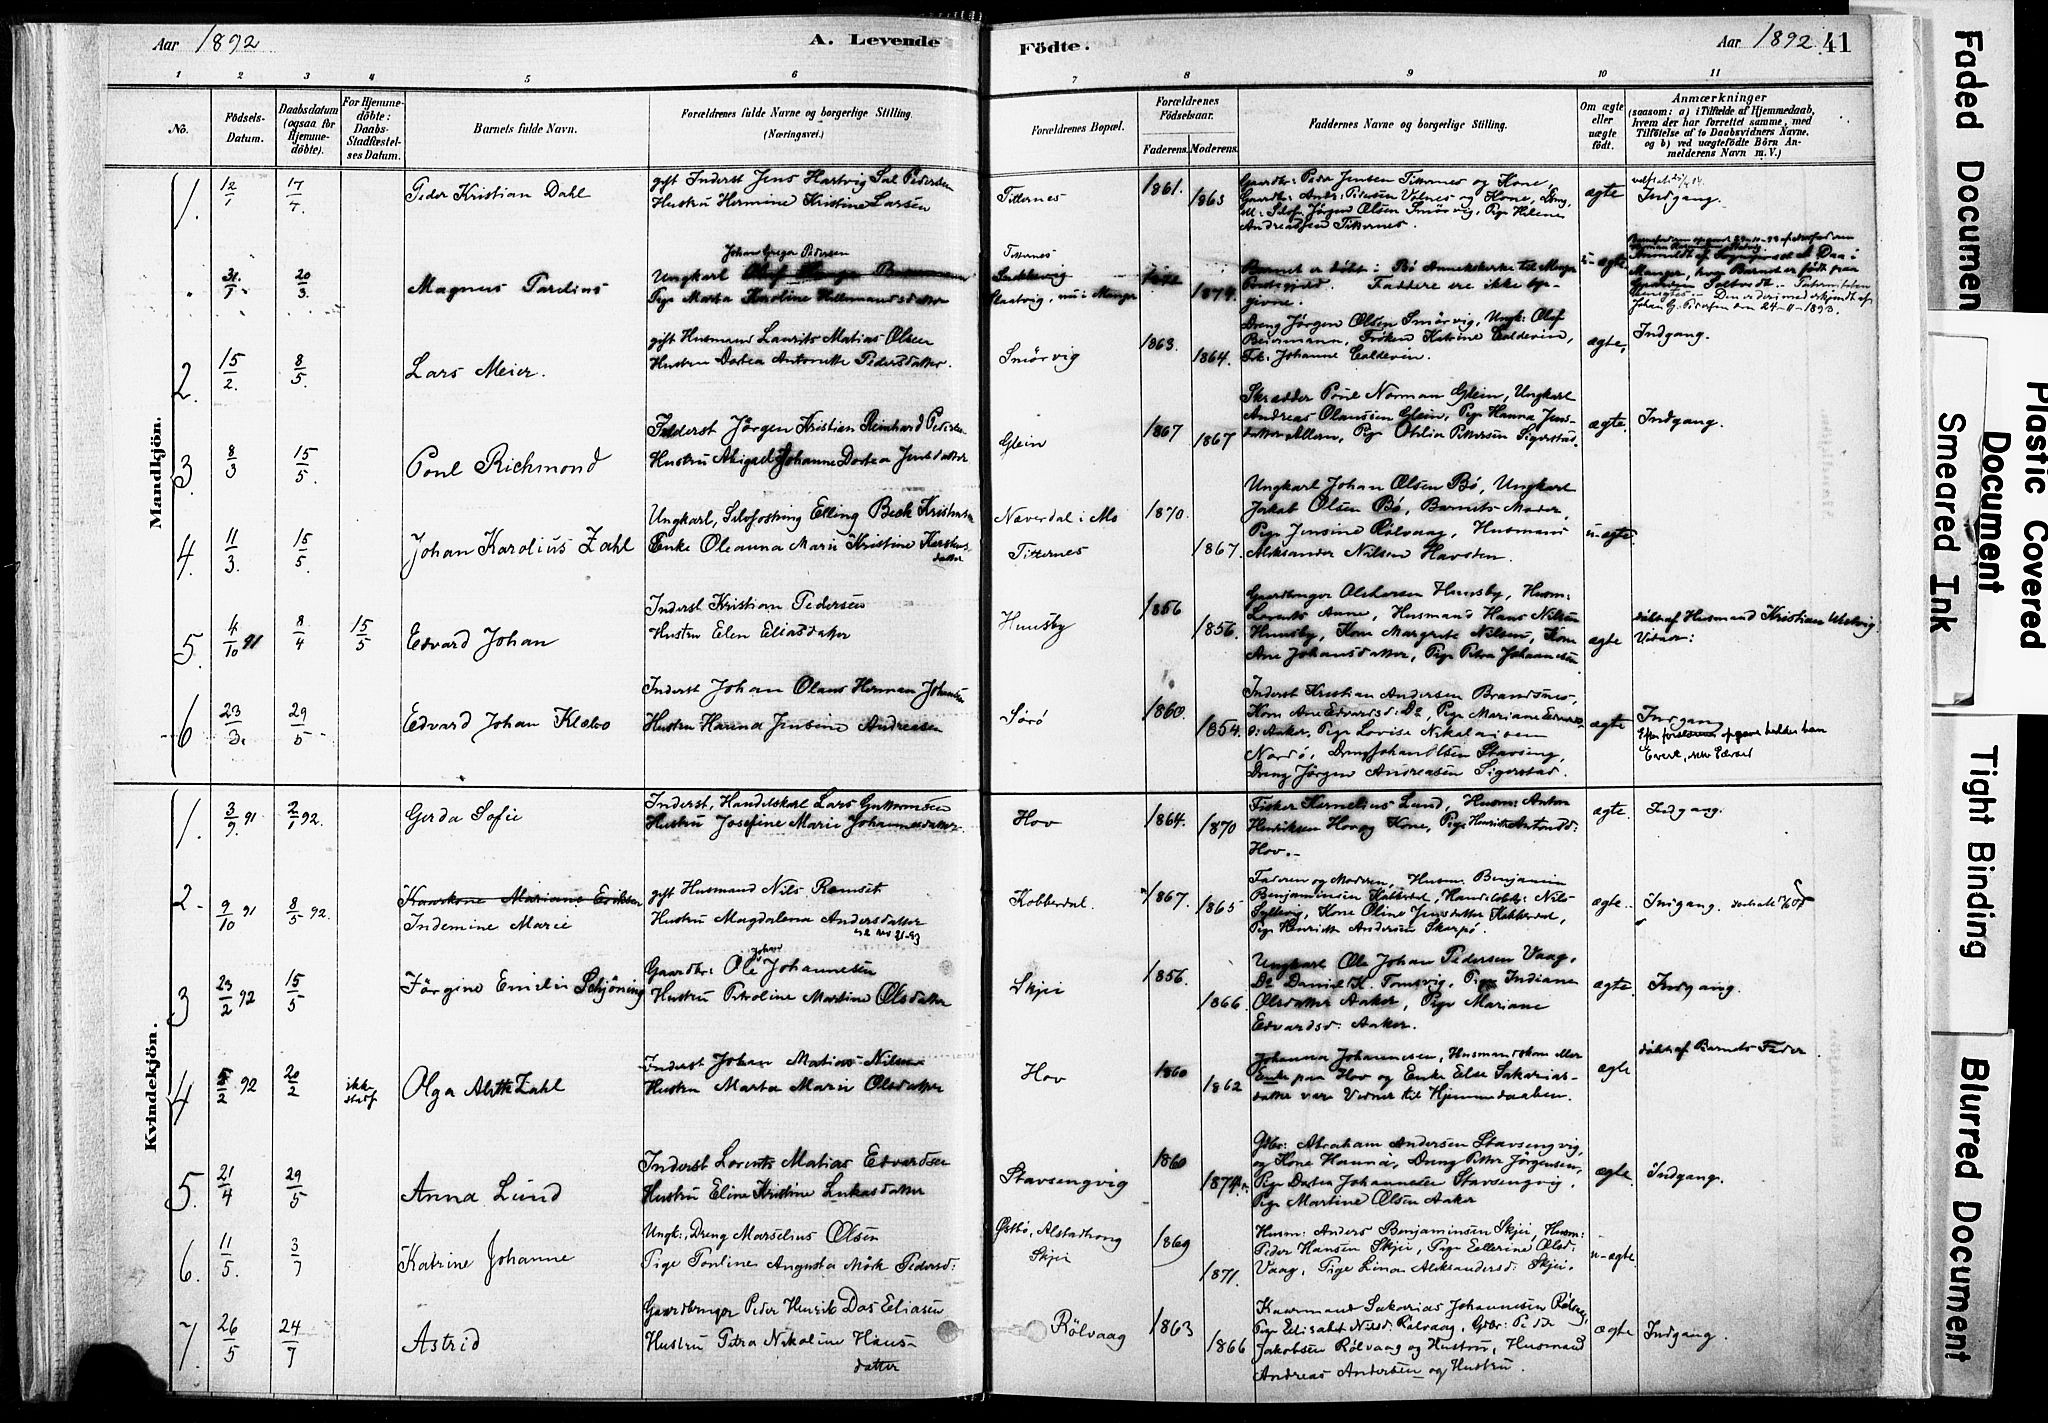 Aar 1892
A. Levende
Födte.
Aar 1892
41
1 2 3 4 5 6 7 8 9 10 11
No.
Födsels-Datum.
Daabsdatum (ogsaa for Hjemmedöbte).
For Hjemmedöbte: Daabs-Stadfæstelses Datum.
Barnets fulde Navn.
Forældrenes fulde Navne og borgerlige Stilling.
(Næringsvei.)
Forældrenes Bopæl.
Forældrenes Födselsaar.
Faderens. Moderens.
Faddernes Navne og borgerlige Stilling.
Om ægte eller uægte födt.
Anmærkninger
(saasom: a) i Tilfælde af Hjemmedaab, hvem der har forrettet samme, med Tilföielse af to Daabsvidners Navne, og b) ved uægtefödte Börn Anmelderens Navn m. V.)
Mandkjön.
1. 12/1 17/7 Peder Kristian Dahl
gift Inderst Jens Hartvig Pedersen
Hustru Hermine Kristine Larsen
Titternes 1861. 1863
Gaardbr: Peder Jensen Titternes og Kone,
Andreassen Titternes.
ægte Indgang.
31/1 20/3 Magnus Parelius
Johan Greger Pedersen
Ungkarl
Pige Marta Karoline
nu i Manger 1874.
Barnet er döbt i Bö Annekskirke til Manger
Præstegjæld. Faddere ere ikke opgivne.
u-ægte
Johan G. Pedersen den 24-11-1893.
2. 15/2 8/5 Lars Meier.
gift Husmand Laurits Matias Olsen
Hustru Dortea Antonette Pedersdatter.
Smörvig 1863. 1864.
Dreng Jørgen Olsen Smörvig, Ungk: Olaf
Beiermann, Fröken Katrine Caldevin,
Frk: Johanne Caldevin.
ægte, Indgang.
3. 8/3 15/5 Poul Richmond
Inderst Jörgen Kristian Reinhard Pedersen
Hustru Abigael Johanne Dortea Jensdatter
Glein 1867 1867
Skrædder Poul Norman Glein, Ungkarl
Andreas Olaussen Glein, Pige Hanna Jensdatter
Pige Otilia Pettersen Sigerstad.
ægte. Indgang.
4. 11/3. 15/5. Johan Karolius Zahl
Ungkarl, Elling Beck Kristensen
Enke Oleanna Marie Kristine
Næverdal i Mo
Titternes
1870. 1867.
Ungkarl Johan Olsen Bö, Ungkarl
Jakob Olsen Bö, Barnets Moder,
Pige Jensine Rölvaag, Husmand
Aleksander Nilsen Havsten.
u-ægte.
5. 4/10 91 8/4 15/5 Edvard Johan
Inderst Kristian Pedersen
Hustru Elen Eliasdatter
Huusby 1856 1856.
Husmand Hans Nilsen
Huusby, Kone Margrete Nilsen, Kone
Ane Johansdatter, Pige Petra Johannesen
ægte
döbt af Husmand Kristian
6 23/3. 29/5 Edvard Johan Klæbo
Inderst Johan Olaus Herman Johansen
Hustru Hanna Jensine Andreasen
Sörö 1860. 1854.
Inderst Kristian Andersen Brandsnes,
Kone Ane Edvardsd: Do, Pige Mariane
Aaker, Pige Lovise Nikolaisen
Nordö, Dreng Johan Olsen Stavseng,
Dreng Jörgen Andreasen Sigerstad.
ægte Indgang
Kvindekjön.
1. 3/9. 91 2/1 92. Gerda Sofie
Inderst, Handelskarl Lars Guttormsen
Hustru Josefine Marie Johannesdatter
Hov 1864. 1870
Fisker Kornelius Lund, Husm: Anton
Henriksen Hov og Kone, Pige Henrikke Antonsd:
Hov.
ægte. Indgang.
2. 9/10 91 8/5 92. Indemine Marie
gift Husmand Nils
Hustru Magdalena Andersdatter
Kobberdal. 1867. 1865
Faderen og Moderen, Husm. Benjamin
Benjaminsen Kobberdal,
Kone Oline Jensdatter Kobberdal,
Pige Henrikke Andersen Skarpö.
ægte. Indgang.
3 23/2 92 15/5 Jörgine Emilie Schjöning
Gaardbr: Ole Johan Johannesen
Hustru Petroline Martine Olsdatter
Skjei 1856. 1866.
Ungkarl Ole Johan Pedersen Vaag,
Do Daniel K. Tomsvig, Pige Indiane
Olsdatter Aaker, Pige Mariane
Edvardsd: Aaker.
ægte. Indgang.
4 5/2 92 20/2 ikke stadf Olga Alette Zahl
Inderst Johan Matias Nilsen
Hustru Marta Marie Olsdatter
Hov 1860 1862
Johanna Johannesen, Husmandskone eller
Enke paa Hov og Enke Else Sakariasdatter
vare Vidner til Hjemmedaaben.
ægte döbt af Barnets Fader.
5. 21/4 29/5 Anna Lund
Inderst Lorents Matias Edvardsen
Hustru Eline Kristine Lukasdatter
Stavsengvig 1860 1874.
Gdbr: Abraham Andersen Stavsengvig,
og Kone Hanna, Dreng Petter Jörgensen,
Pige Dortea Johannesen Stavsengvig,
Pige Martine Olsen Aaker
ægte. Indgang.
6. 11/5. 3/7 Katrine Johanne
Ungk:, Dreng Marselius Olsen
Pige Pauline Augusta Mörk Pedersd:
Østbö, Alstadhoug
Skjei
1869 1871.
Husm: Anders Benjaminsen Skjei, Husm:
Peder Hansen Skjei, Pige Ellerine Olsd:
Vaag, Pige Lina Aleksandersd: Skjei.
u-ægte
7. 26/5 24/7 Astrid
Gaardbruger Peder Henrik Das Eliasen
Hustru Petra Nikoline Hansdatter
Rölvaag 1863 1866
Kaarmand Sakarias Johannesen Rölvaag,
Pige Elisabet Nilsd. Rölvaag, Gdbr: Peder
Jakobsen Rölvaag og Hustru, Husmand
Andreas Andersen og Hustru.
ægte Indgang.
Faded Document
Plastic Covered Document
Smeared Ink
Tight Binding
Blurred Document